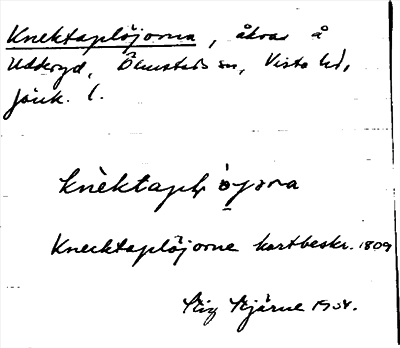 Knektaplöjorna, åkrar å
Uddryd, Ölmstads sn, Vista hd,
Jönk. l.
knèktapløjↄra
Knecktaplöjorne kartbeskr. 1809
Stig Stjärne 1904.